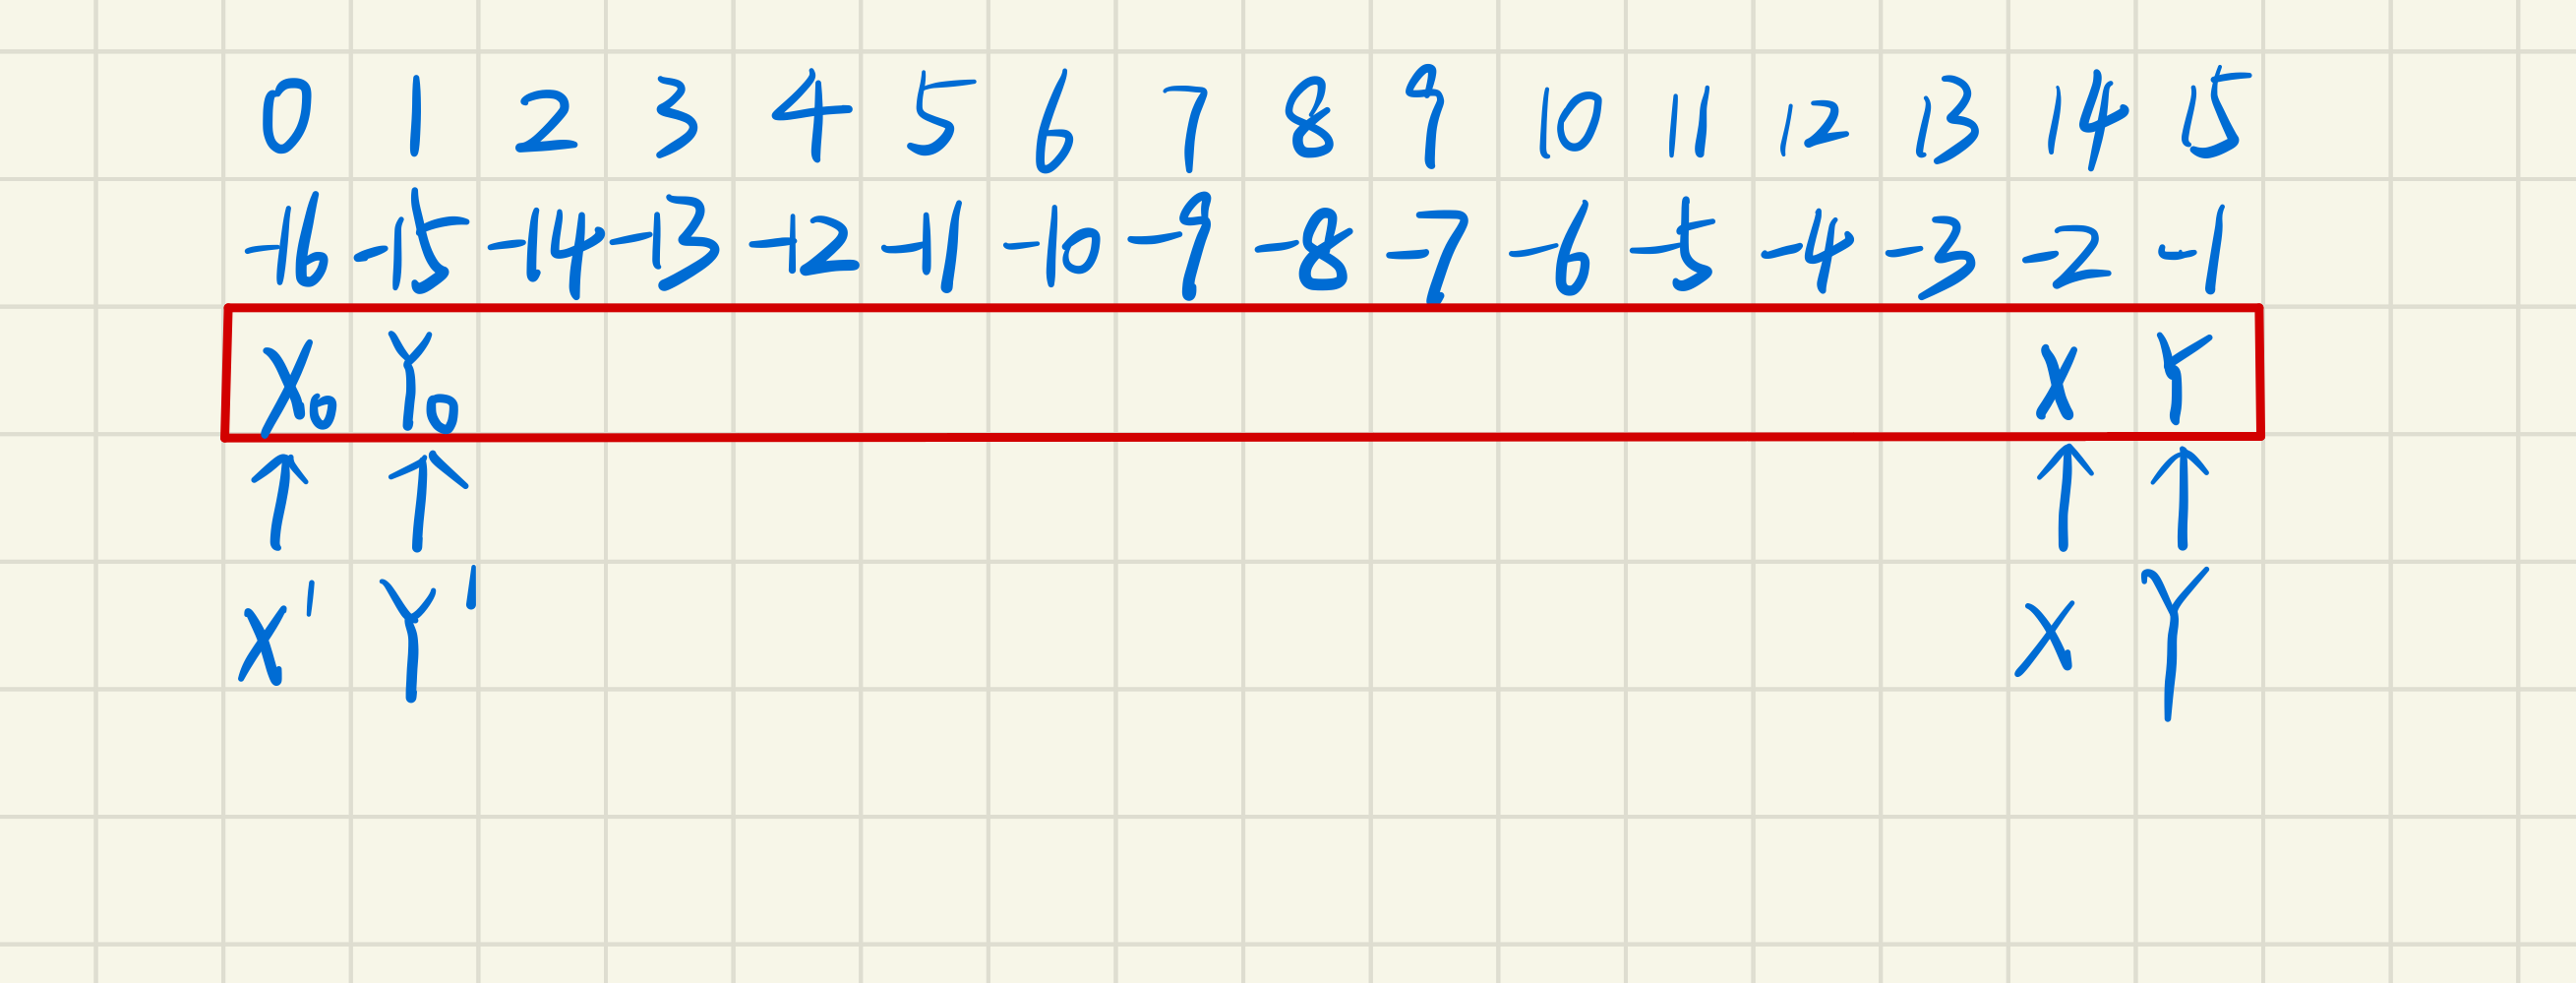 0 1 2 3 4 5 6 7 8 9 10 11 12 13 14 15
-16 -15 -14 -13 -12 -11 -10 -9 -8 -7 -6 -5 -4 -3 -2 -1
X₀ Y₀ X Y
↑ ↑ ↑ ↑
X' Y' X Y